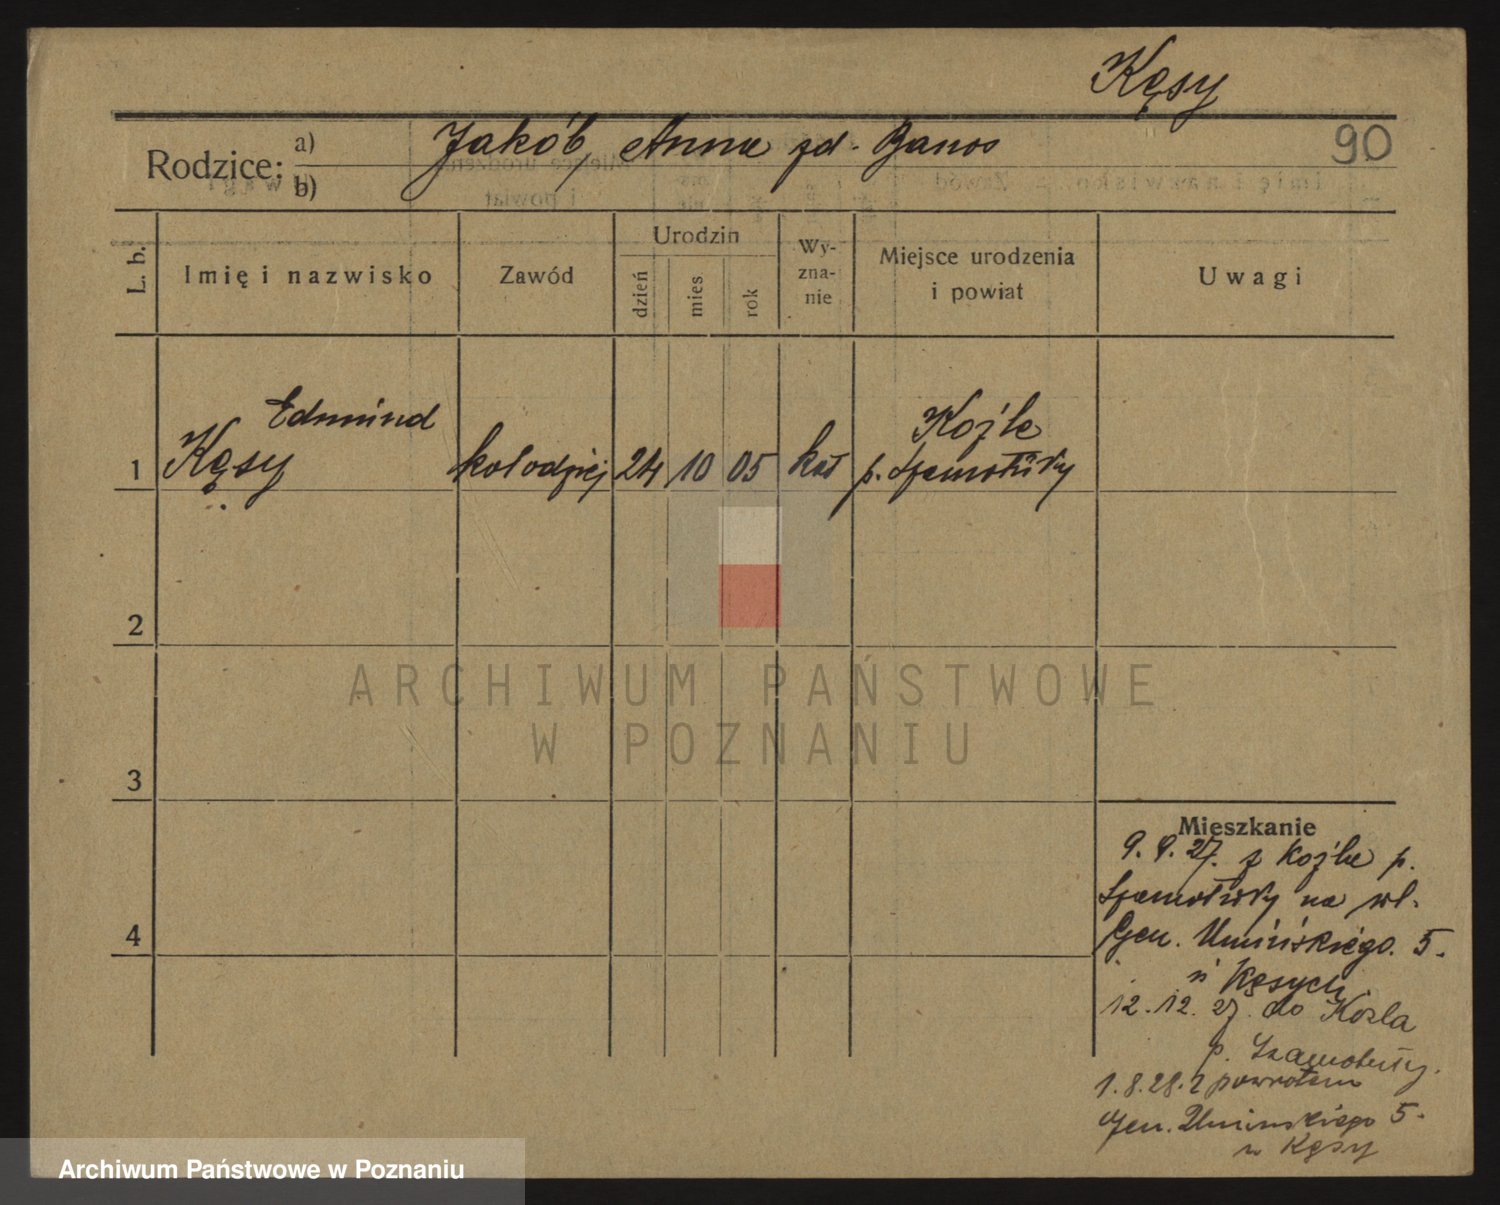 Kęsy
90
Rodzice:
a)
b)
Jakób, Anna zd. Banos
L. b.
Imię i nazwisko
Zawód
Urodzin
dzień
mies
rok
Wy-
zna-
nie
Miejsce urodzenia
i powiat
Uwagi
Edmund
1 Kęsy kołodziej 24 10 05 kat
Koźle
p. Szamotuły
2
3
4
Mieszkanie
9. 9. 27. z Koźle p.
Szamotuły na wł.
Gen. Umińskiego. 5.
u Kęsych
12. 12. 27. do Kozla
p. Szamotuły.
1. 8. 28. z powrotem
Gen. Uminskiego 5.
u Kęsy
ARCHIWUM PAŃSTWOWE
W POZNANIU
Archiwum Państwowe w Poznaniu